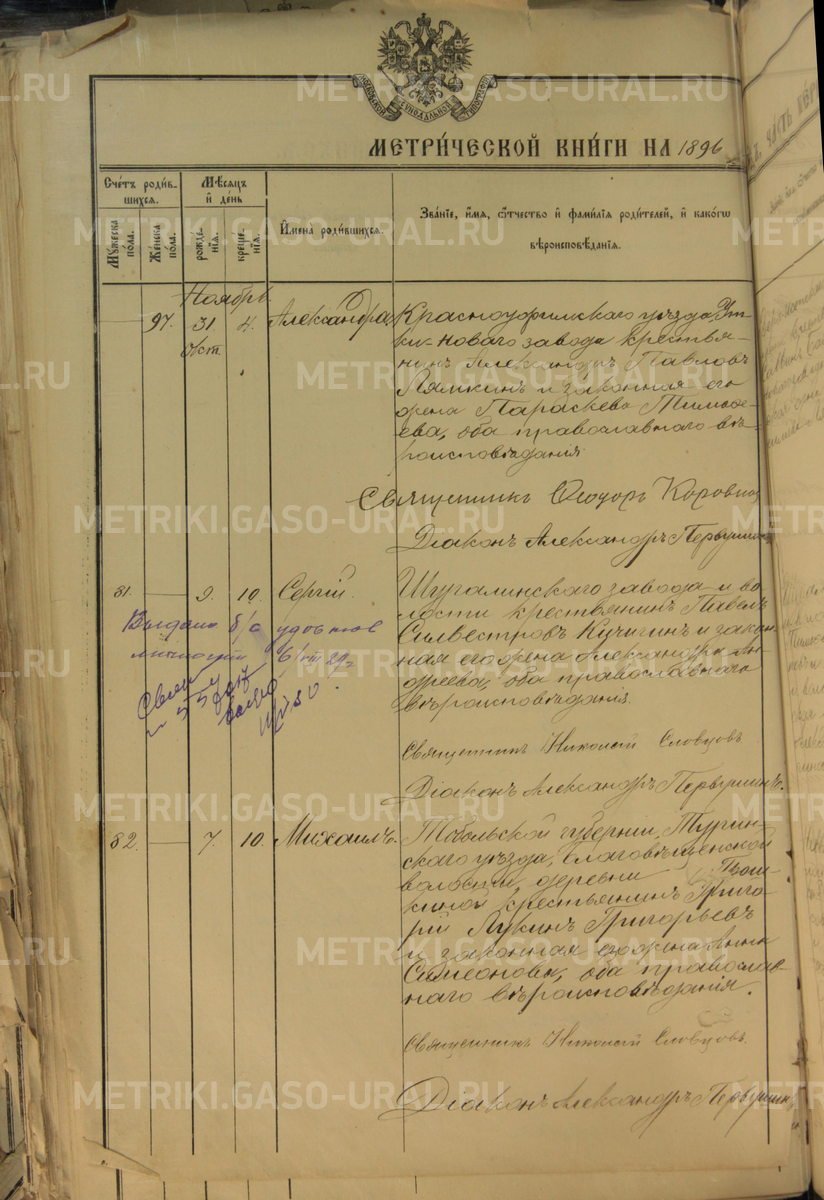 МОСКОВСКОЙ СѴНОДАЛЬНОЙ ТИПОГРАФІИ
МЕТРИ́ЧЕСКОЙ КНИ́ГИ НА 1896
Сче́тъ роди́в-
шихся.
Мѣ́сяцъ
и҆ де́нь
Мꙋ́жеска
по́ла.
Же́нска
по́ла.
рожде́-
нїѧ.
креще́-
нїѧ.
И҆мена̀ роди́вшихся.
Зва́нїе, и҆́мѧ, ѻ҆́тчество и҆ фами́лїѧ роди́телей, и҆ како́гѡ
вѣроисповѣ́данїѧ.
Ноябрь
97. 31 4. Александра
Окт.
Красноуфимскаго уѣзда, Ут-
ки-Новаго завода крестья-
нинъ Александръ Павловъ
Лямкинъ и законная его
жена Параскева Тимофе-
ева, оба православнаго вѣ-
роисповѣданія
Священникъ Ѳеодоръ Коровин
Діаконъ Александръ Первушин
81. — 9. 10. Сергій.
Шугалинскаго завода и во-
лости крестьянинъ Павелъ
Сильвестровъ Кучигинъ и закон-
ная его жена Александра Ан-
дреева, оба православнаго
вѣроисповѣданія.
Выдано б/с удост.
личности
Священникъ Николай Словцовъ
Діаконъ Александръ Первушинъ.
82. — 7. 10. Михаилъ.
Тобольской губерніи,
уѣзда, Благовѣщенской
волости, деревни
крестьянинъ Григо-
рій Лукинъ Григорьевъ
и законная его жена Анна
Симеоновна, оба православ-
наго вѣроисповѣданія.
Священникъ Николай Словцовъ.
Діаконъ Александръ Первушин
METRIKI.GASO-URAL.RU